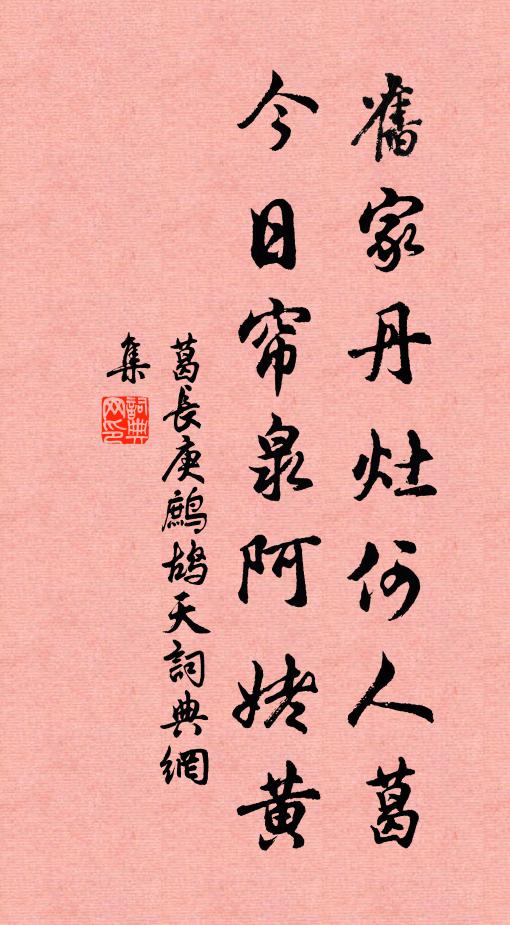 舊家丹灶何人葛
今日帘泉阿姥黄
葛長庚鷓鴣天詞典網
集
詞典網印